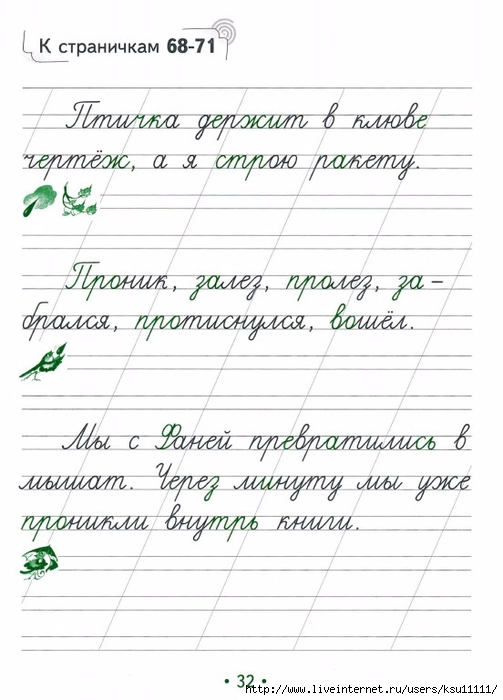 К страничкам 68-71
Птичка держит в клюве
чертёж, а я строю ракету.
Проник, залез, пролез, за-
брался, протиснулся, вошёл.
Мы с Фаней превратились в
мышат. Через минуту мы уже
проникли внутрь книги.
• 32 •
http://www.liveinternet.ru/users/ksu11111/